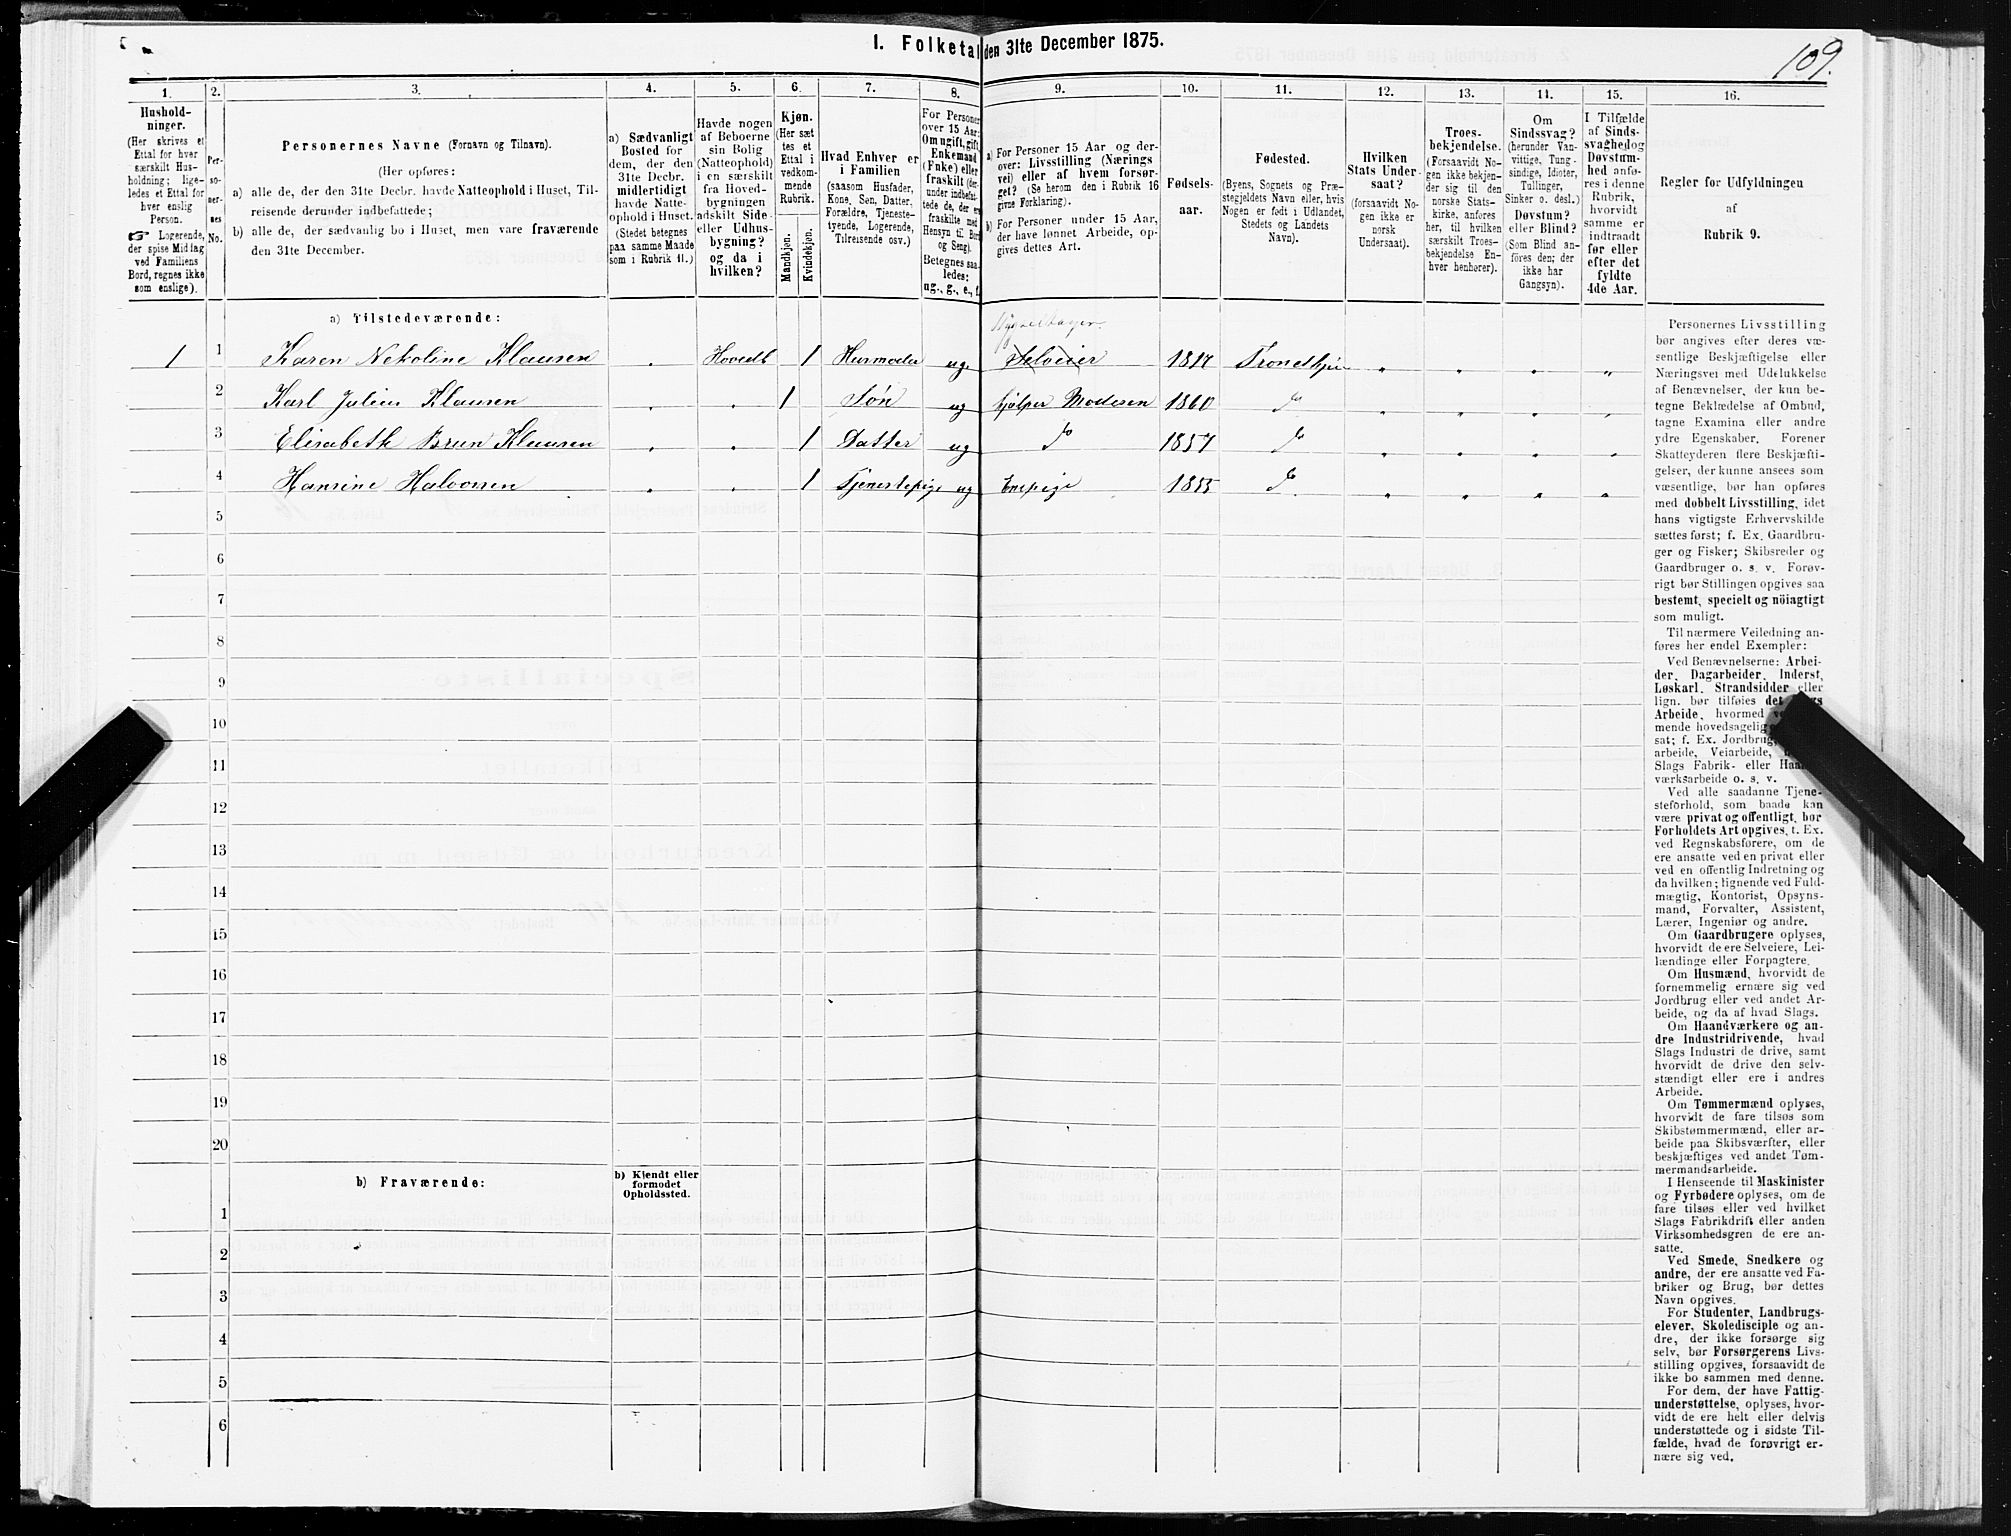 1. Folketal den 31te December 1875.
109.
1. 2. 3. 4. 5. 6. 7. 8. 9. 10. 11. 12. 13. 14. 15. 16.
Hushold-
ninger.
(Her skrives et
Ettal for hver
særskilt Hus-
holdning; lige-
ledes et Ettal for
hver enslig
Person.
☞ Logerende,
der spise Middag
ved Familiens
Bord, regnes ikke
som enslige).
Per-
so-
ner-
nes
No.
Personernes Navne (Fornavn og Tilnavn).
(Her opføres:
a) alle de, der den 31te Decbr. havde Natteophold i Huset, Til-
reisende derunder indbefattede;
b) alle de, der sædvanlig bo i Huset, men vare fraværende
den 31te December.
a) Sædvanligt
Bosted for
dem, der den
31te Decbr.
midlertidigt
havde Natte-
ophold i Huset.
(Stedet betegnes
paa samme Maade
som i Rubrik 11.)
Havde nogen
af Beboerne
sin Bolig
(Natteophold)
i en særskilt
fra Hoved-
bygningen
adskilt Side-
eller Udhus-
bygning?
og da i
hvilken?
Kjøn.
(Her sæt-
tes et
Ettal i
vedkom-
mende
Rubrik.
Mandkjøn.
Kvindekjøn.
Hvad Enhver er
i Familien
(saasom Husfader,
Kone, Søn, Datter,
Forældre, Tjeneste-
tyende, Logerende,
Tilreisende osv.)
For Personer
over 15 Aar:
Om ugift, gift,
Enkemand
(Enke) eller
fraskilt (der-
under indbefat-
tede de, der ere
fraskilte med
Hensyn til Bord
og Seng).
Betegnes saa-
ledes:
ug., g., e., f.
a) For Personer 15 Aar og der-
over: Livsstilling (Nærings-
vei) eller af hvem forsør-
get? (Se herom den i Rubrik 16
givne Forklaring).
b) For Personer under 15 Aar,
der have lønnet Arbeide, op-
gives dettes Art.
Fødsels-
aar.
Fødested.
(Byens, Sognets og Præ-
stegjeldets Navn eller, hvis
Nogen er født i Udlandet,
Stedets og Landets
Navn).
Hvilken
Stats Under-
saat?
(forsaavidt No-
gen ikke er
norsk
Undersaat).
Troes-
bekjendelse.
(Forsaavidt No-
gen ikke bekjen-
der sig til den
norske Stats-
kirke, anføres
her, til hvilken
særskilt Troes-
bekjendelse En-
hver henhører).
Om
Sindssvag?
(herunder Van-
vittige, Tung-
sindige, Idioter,
Tullinger,
Sinker o. desl.)
Døvstum?
eller Blind?
(Som Blind an-
føres den; der
ikke har
Gangsyn).
I Tilfælde
af Sinds-
svaghed og
Døvstum-
hed anfø-
res i denne
Rubrik,
hvorvidt
samme er
indtraadt
før eller
efter det
fyldte
4de Aar.
Regler for Udfyldningen
af
Rubrik 9.
a) Tilstedeværende:
1 1 Karen Nekoline Klausen „ Hovedb 1 Husmoder ug. Selveier 1817 Trondhjem „ „ „ „
2 Karl Julius Klausen „ „ 1 Søn ug hjælper Moderen 1860 do „ „ „ „
3 Elisabeth Brun Klausen „ „ 1 Datter ug do 1857 do „ „ „ „
4 Hansine Halvorsen „ „ 1 Tjenestepige ug Enepige 1855 do „ „ „ „
5
6
7
8
9
10
11
12
13
14
15
16
17
18
19
20
b) Fraværende:
b) Kjendt eller
formodet
Opholdssted.
1
2
3
4
5
6
Personernes Livsstilling
bør angives efter deres væ-
sentlige Beskjæftigelse eller
Næringsvei med Udelukkelse
af Benævnelser, der kun be-
tegne Beklædelse af Ombud,
tagne Examina eller andre
ydre Egenskaber. Forener
Skatteyderen flere Beskjæfti-
gelser, der kunne ansees som
væsentlige, bør han opføres
med dobbelt Livsstilling, idet
hans vigtigste Erhvervskilde
sættes først; f. Ex. Gaardbru-
ger og Fisker; Skibsreder og
Gaardbruger o. s. v. Forøv-
rigt bør Stillingen opgives saa
bestemt, specielt og nöiagtigt
som muligt.
Til nærmere Veiledning an-
føres her endel Exempler:
Ved Benævnelserne: Arbei-
der, Dagarbeider, Inderst,
Løskarl, Strandsidder eller
lign. bør tilføies det Slags
Arbeide, hvormed
mende hovedsagelig
sat; f. Ex. Jordbrug,
arbeide, Veiarbeide,
Slags Fabrik- eller Haand-
værksarbeide o. s. v.
Ved alle saadanne Tjene-
steforhold, som baade kan
være privat og offentligt, bør
Forholdets Art opgives, t. Ex.
ved Regnskabsførere, om de
ere ansatte ved en privat eller
ved en offentlig Indretning og
da hvilken; lignende ved Fuld-
mægtig, Kontorist, Opsyns-
mand, Forvalter, Assistent,
Lærer, Ingeniør og andre.
Om Gaardbrugere oplyses,
hvorvidt de ere Selveiere, Lei-
lændinge eller Forpagtere.
Om Husmænd, hvorvidt de
fornemmelig ernære sig ved
Jordbrug eller ved andet Ar-
beide, og da af hvad Slags.
Om Haandværkere og an-
dre Industridrivende, hvad
Slags Industri de drive, samt
hvorvidt de drive den selv-
stændigt eller ere i andres
Arbeide.
Om Tømmermænd oplyses,
hvorvidt de fare tilsøs som
Skibstømmermænd, eller ar-
beide paa Skibsværfter, eller
beskjæftiges ved andet Tøm-
mermandsarbeide.
I Henseende til Maskinister
og Fyrbødere oplyses, om de
fare tilsøs eller ved hvilket
Slags Fabrikdrift eller anden
Virksomhedsgren de ere an-
satte.
Ved Smede, Snedkere og
andre, der ere ansatte ved Fa-
briker og Brug, bør dettes
Navn opgives.
For Studenter, Landbrugs-
elever, Skoledisciple og an-
dre, der ikke forsørge sig
selv, bør Forsørgerens Livs-
stilling opgives, forsaavidt de
ikke bo sammen med denne.
For dem, der have Fattig-
understøttelse, oplyses, hvor-
vidt de ere helt eller delvis
understøttede og i sidste Til-
fælde, hvad de forøvrigt er-
nære sig ved.